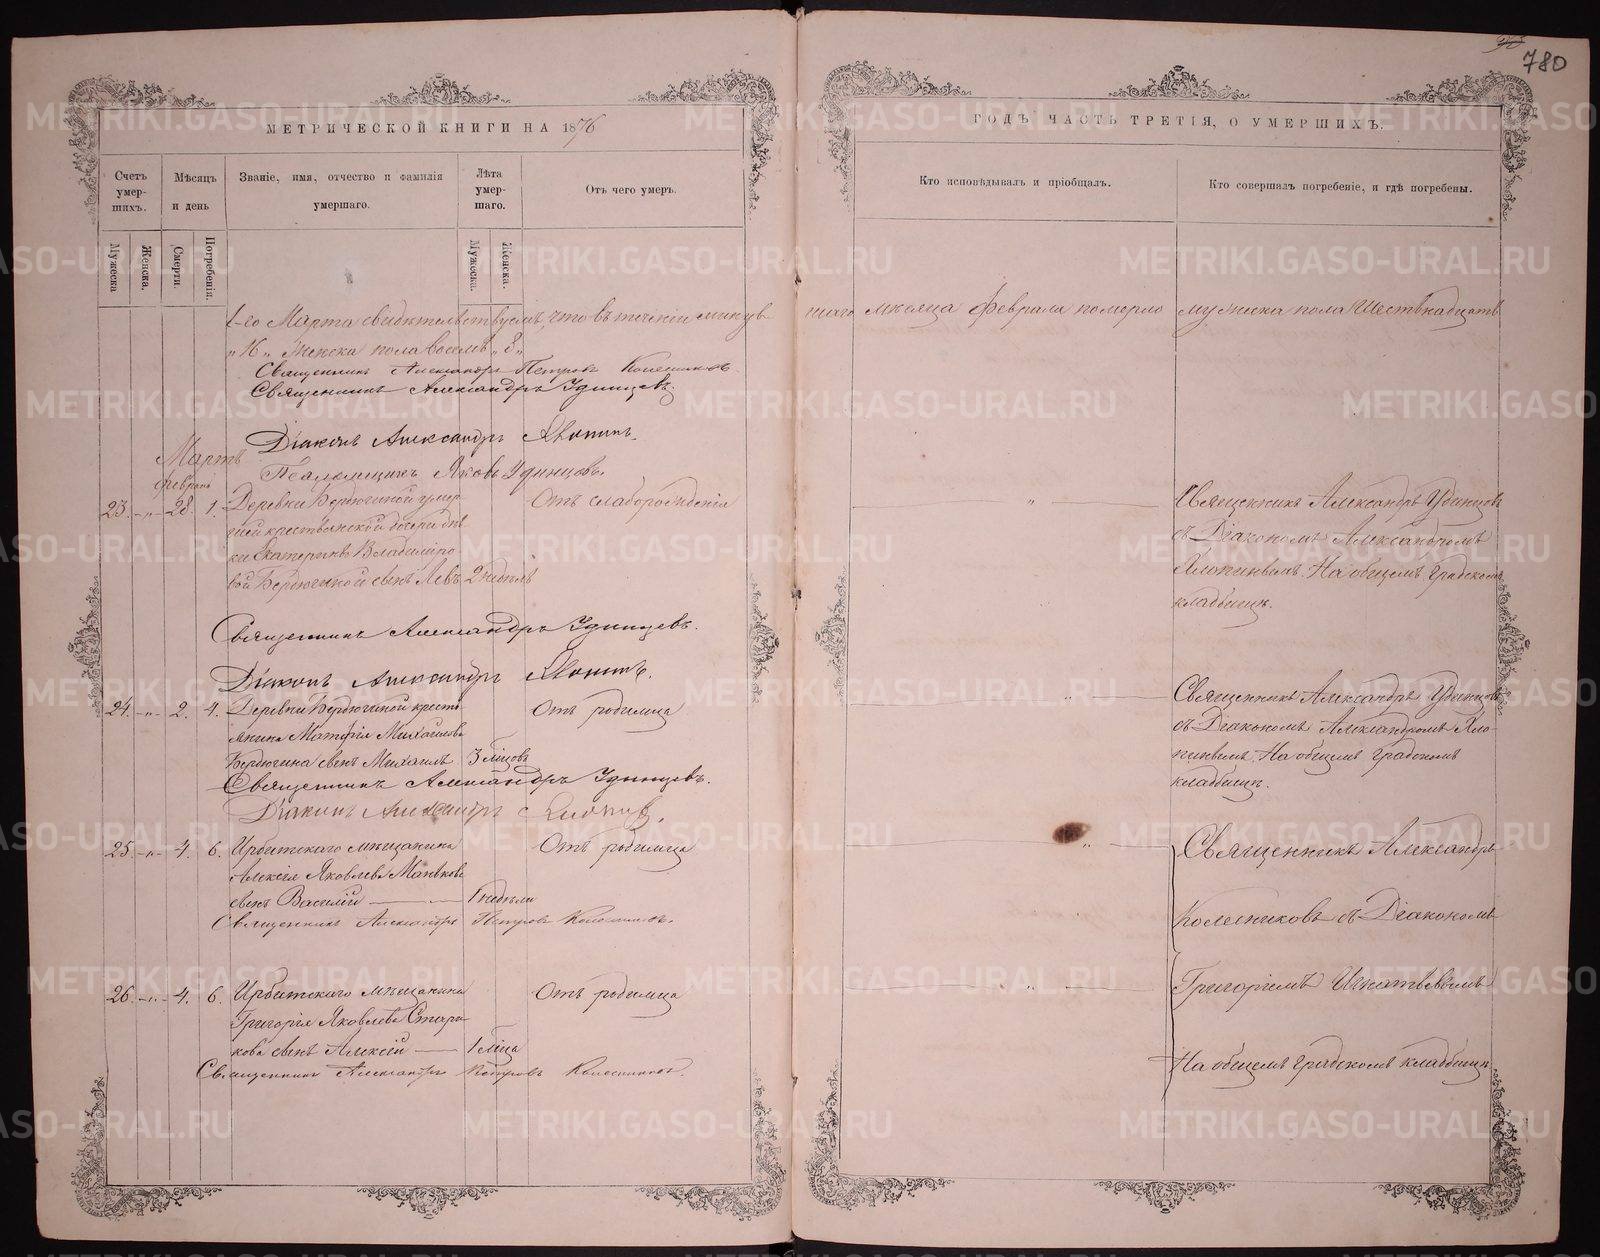 780
МЕТРИЧЕСКОЙ КНИГИ НА 1876
ГОДЪ ЧАСТЬ ТРЕТІЯ, О УМЕРШИХЪ.
Счетъ умер-
шихъ.
Мѣсяцъ
и день
Званіе, имя, отчество и фамилія
умершаго.
Лѣта
умер-
шаго.
Отъ чего умеръ.
Кто исповѣдывалъ и пріобщалъ.
Кто совершалъ погребеніе, и гдѣ погребены.
Мужеска
Женска.
Смерти.
Погребенія.
Мужеска.
Женска.
1-го Марта свидѣтельствуемъ, что въ теченіи минув
шаго мѣсяца Февраля померло мужеска пола Шестьнадцать
„16„ Женска пола восемь „8„
Священникъ Александръ Петровъ Колесниковъ
Священникъ Александръ Удинцевъ.
Діаконъ Александръ Хлопинъ.
Мартъ
Псаломщикъ Яковъ Удинцовъ.
Февраля
23. -„- 28. 1. Деревни Бердюгиной умер-
шей крестьянской дочери дѣв
ки Екатерины Владиміро
вой Бердюгиной сынъ Левъ 2 недѣль
Отъ слаборожденія
„
Священникъ Александръ Удинцовъ
съ Діакономъ Александромъ
Хлопинымъ. На общемъ градскомъ
кладбищѣ.
Священникъ Александръ Удинцевъ.
Діаконъ Александръ Хлопинъ.
24. -„- 2. 4. Деревни Бердюгиной кресть
янина Матфія Михайлова
Бердюгина сынъ Михаилъ 3 мѣсцовъ
Отъ родимца
„
Священникъ Александръ Удинцовъ
съ Діакономъ Александромъ Хло-
пинымъ. На общемъ градскомъ
кладбищѣ.
Священникъ Александръ Удинцевъ.
Діаконъ Александръ Хлопинъ.
25. -„- 4. 6. Ирбитскаго мѣщанина
Алексія Яковлева
сынъ Василій 1 недѣли
Отъ родимца
„
Священникъ Александръ Петровъ Колесниковъ.
26. -„- 4. 6. Ирбитскаго мѣщанина
Григорія Яковлева Стари-
кова сынъ Алексій 1 мѣца
Отъ родимца
„
Священникъ Александръ Петровъ Колесниковъ.
Священникъ Александръ
Колесниковъ съ Діакономъ
Григоріемъ Игнатьевымъ
На общемъ градскомъ кладбищѣ
METRIKI.GASO-URAL.RU